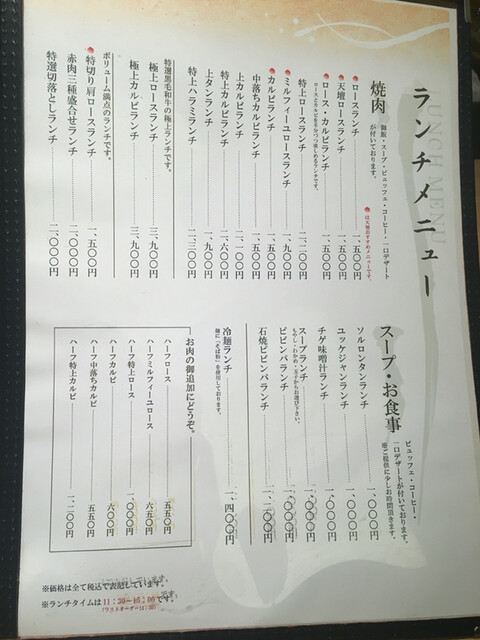 ランチメニュー
LUNCH MENU
焼肉
御飯・スープ・ビュッフェ・コーヒー・一口デザート
が付いております。
は天壇おすすめメニューです。
ロースランチ 一、五〇〇円
天壇ロースランチ 一、五〇〇円
ロース・カルビランチ 一、五〇〇円
ロースとカルビを半分づつ楽しめるランチです。
特上ロースランチ 二、二〇〇円
ミルフィーユロースランチ 一、九〇〇円
カルビランチ 一、五〇〇円
中落ちカルビランチ 一、五〇〇円
上カルビランチ 二、一〇〇円
特上カルビランチ 二、六〇〇円
上タンランチ 一、九〇〇円
特上ハラミランチ 二、三〇〇円
特選黒毛和牛の極上ランチです。
極上ロースランチ 三、九〇〇円
極上カルビランチ 三、九〇〇円
ボリューム満点のランチです。
特切り肩ロースランチ 一、五〇〇円
赤肉三種盛合せランチ 二、〇〇〇円
特選切落としランチ 二、〇〇〇円
スープ・お食事
ビュッフェ・コーヒー・
一口デザートが付いております。
※ご提供に少しお時間頂きます。
ソルロンタンランチ 一、〇〇〇円
ユッケジャンランチ 一、〇〇〇円
チゲ味噌汁ランチ 一、〇〇〇円
スープランチ 一、〇〇〇円
もやし・わかめ・玉子からお選び下さい。
ビビンバランチ 一、〇〇〇円
石焼ビビンバランチ 一、二〇〇円
冷麺ランチ 一、四〇〇円
麺に「そば粉」を使用しております。
お肉の御追加にどうぞ。
ハーフロース 五五〇円
ハーフミルフィーユロース 六五〇円
ハーフ特上ロース 一、〇〇〇円
ハーフカルビ 六〇〇円
ハーフ中落ちカルビ 五五〇円
ハーフ特上カルビ 一、二〇〇円
※価格は全て税込で表記しています。
※ランチタイムは11:30～15:00です。
(ラストオーダーは